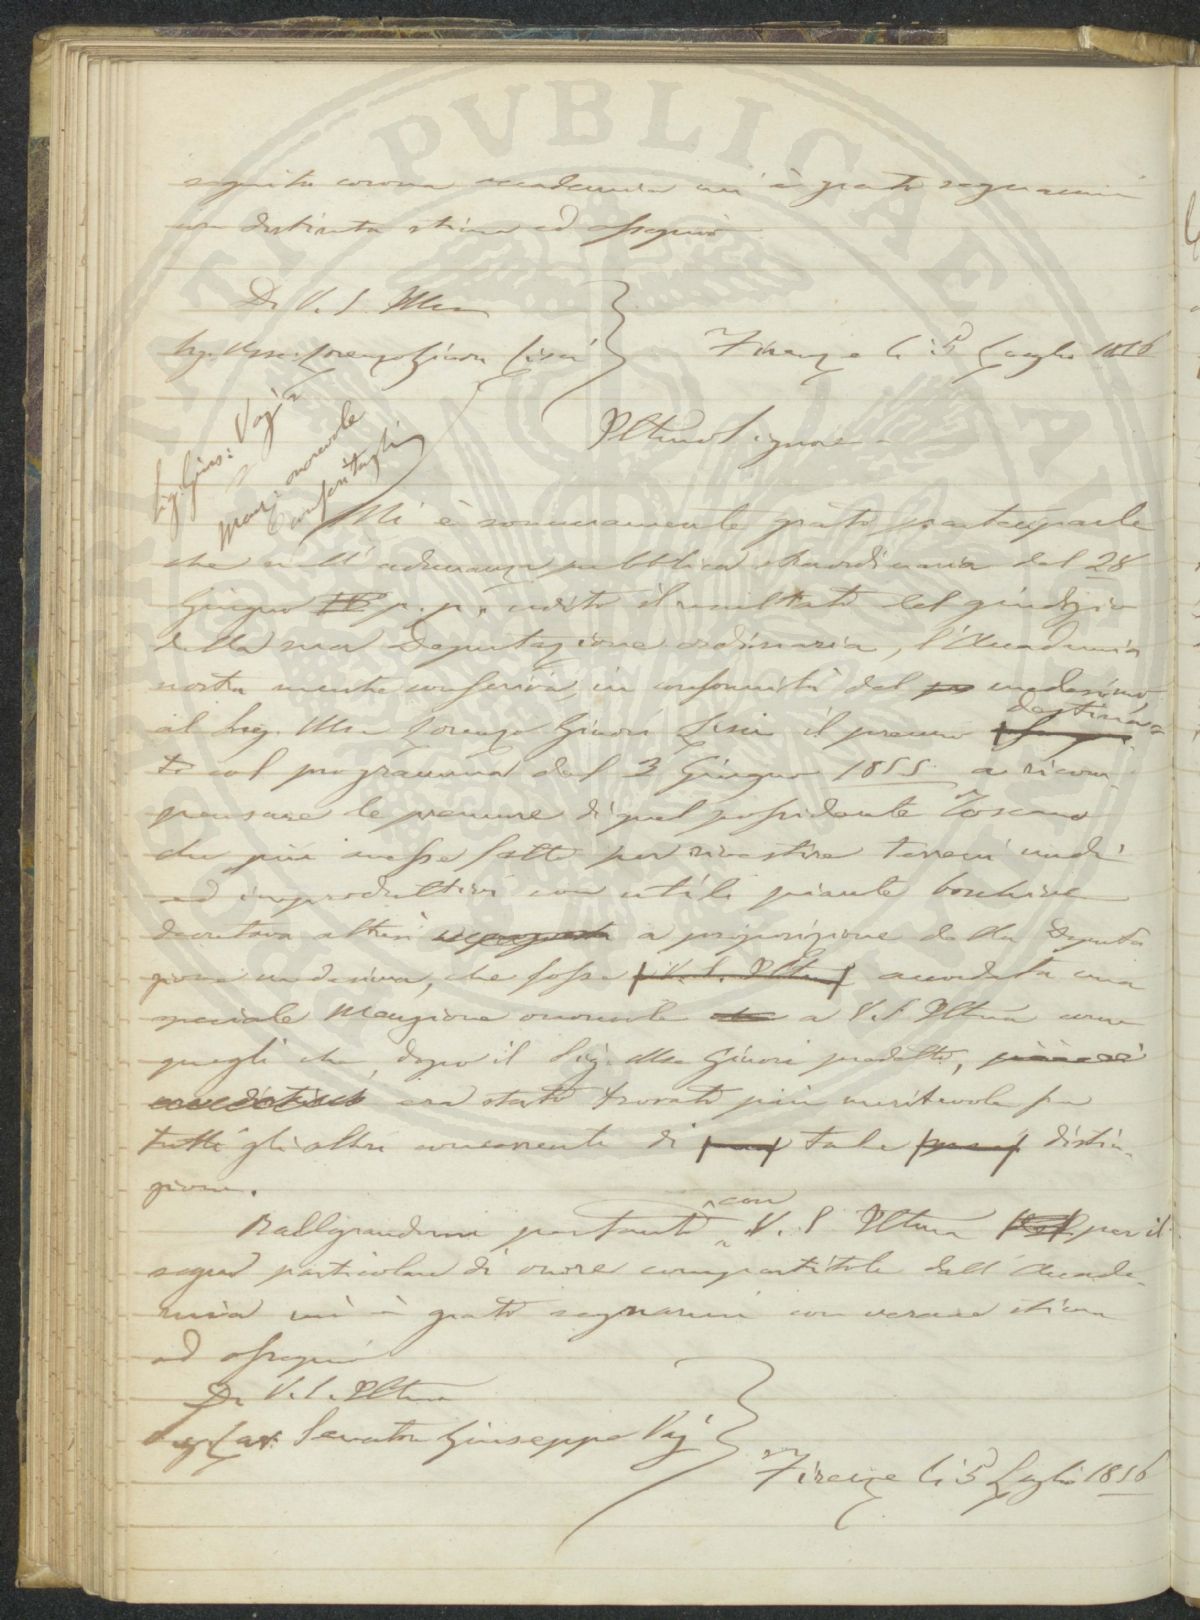 seguito corona accademia mi è grato segnarmi
con distinta stima ed ossequio
Di V. S. Illma
Sig. March. Lorenzo Ginori Lisci
Firenze li 5 Luglio 1856
Sig. Gius: Vaj
Menz: onorevole
Conferitagli
Illmo Signore
Mi è sommamente grato parteciparle
che nell'adunanza pubblica straordinaria del 28
Giugno p. p., udito il resultato del giudizio
della sua Deputazione ordinaria, l'Accademia
nostra mentre conferiva, in conformità del medesimo
al Sig. Mse Lorenzo Ginori Lisci il premio destina-
to col programma del 3 Giugno 1855 a ricom-
pensare le premure di quel possidente Toscano
che più avesse fatto per rivestire terreni nudi
ed improduttivi con utili piante boschive
decretava altresì a proposizione della Deputa
zione medesima, che fosse V. S. Illma accordata una
speciale Menzione onorevole a V. S. Illma come
quegli che, dopo il Sig. Mse Ginori predetto,
era stato trovato più meritevole fra
tutti gli altri concorrenti di tale distin-
zione.
Rallegrandomi pertanto con V. S. Illma per il
segno particolare di onore compartitole dall'Accade-
mia mi è grato segnarmi con verace stima
ed ossequio
Di V. S. Illma
Sig. Cav. Senator Giuseppe Vaj
Firenze li 5 Luglio 1856
PVBLICAE